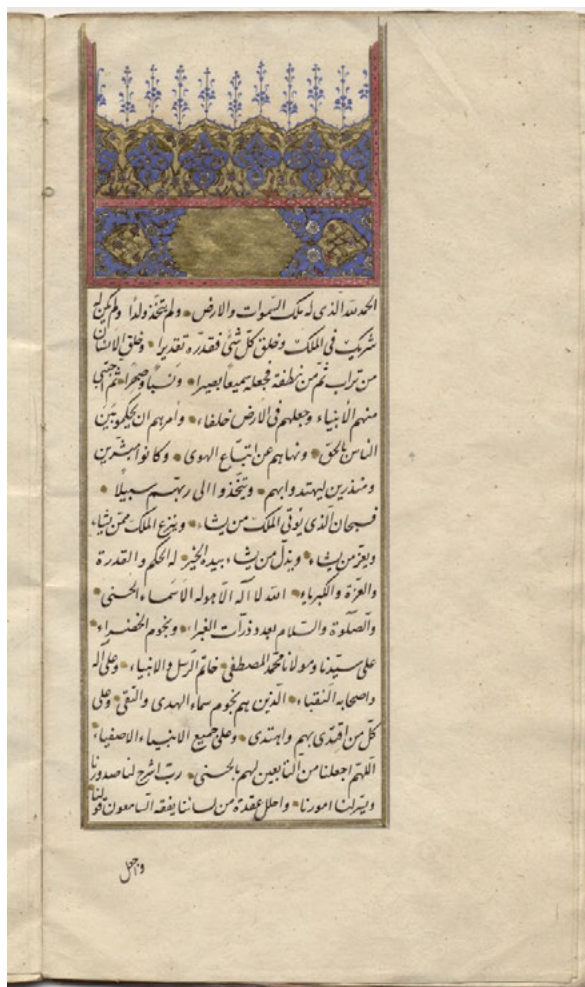 الحمد لله الذى له ملك السموات والارض ولم يتخذ ولدا ولم يكن له
شريك فى الملك وخلق كل شئ فقدره تقديرا وخلق الانسان
من تراب ثم من نطفة فجعله سميعا بصيرا ونسبا وصهرا ثم اجتبى
منهم الانبياء وجعلهم فى الارض خلفاء وامرهم ان يحكموا بين
الناس بالحق ونهاهم عن اتباع الهوى وكانوا مبشرين
ومنذرين ليهتدوا بهم ويتخذوا الى ربهم سبيلا
فسبحان الذى يؤتى الملك من يشاء وينزع الملك ممن يشاء
ويعز من يشاء ويذل من يشاء بيده الخير له الحكم والقدرة
والعزة والكبرياء الله لا اله الا هو له الاسماء الحسنى
والصلوة والسلام بعدد ذرات الغبراء ونجوم الخضراء
على سيدنا ومولانا محمد المصطفى خاتم الرسل والانبياء وعلى آله
واصحابه النقباء الذين هم نجوم سماء الهدى والتقى وعلى
كل من اقتدى بهم واهتدى وعلى جميع الانبياء الاصفياء
اللهم اجعلنا من التابعين لهم بالحسنى رب اشرح لنا صدورنا
ويسر لنا امورنا واحلل عقدة من لساننا يفقه السامعون قولنا
واجعل